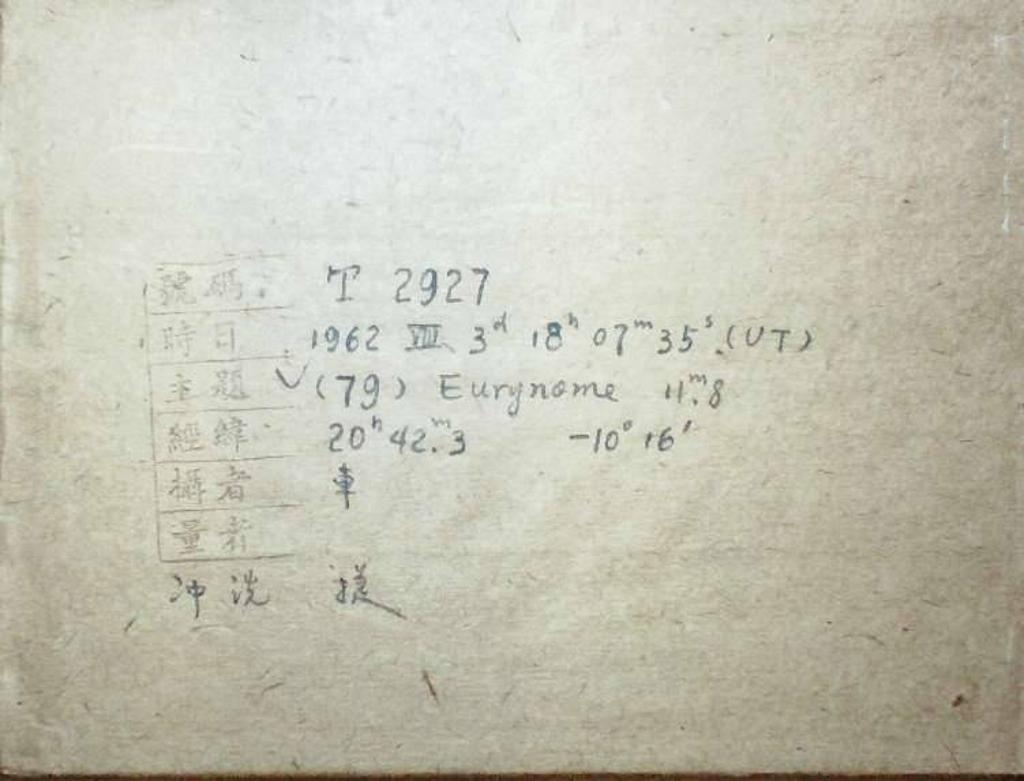 號碼: T 2927
時日 1962 VIII 3ᵈ 18ʰ 07ᵐ 35ˢ.(UT)
主題 ✓(79) Eurynome 11ᵐ.8
經緯 20ʰ 42.ᵐ3 -10°16′
攝者 車
量者
冲洗